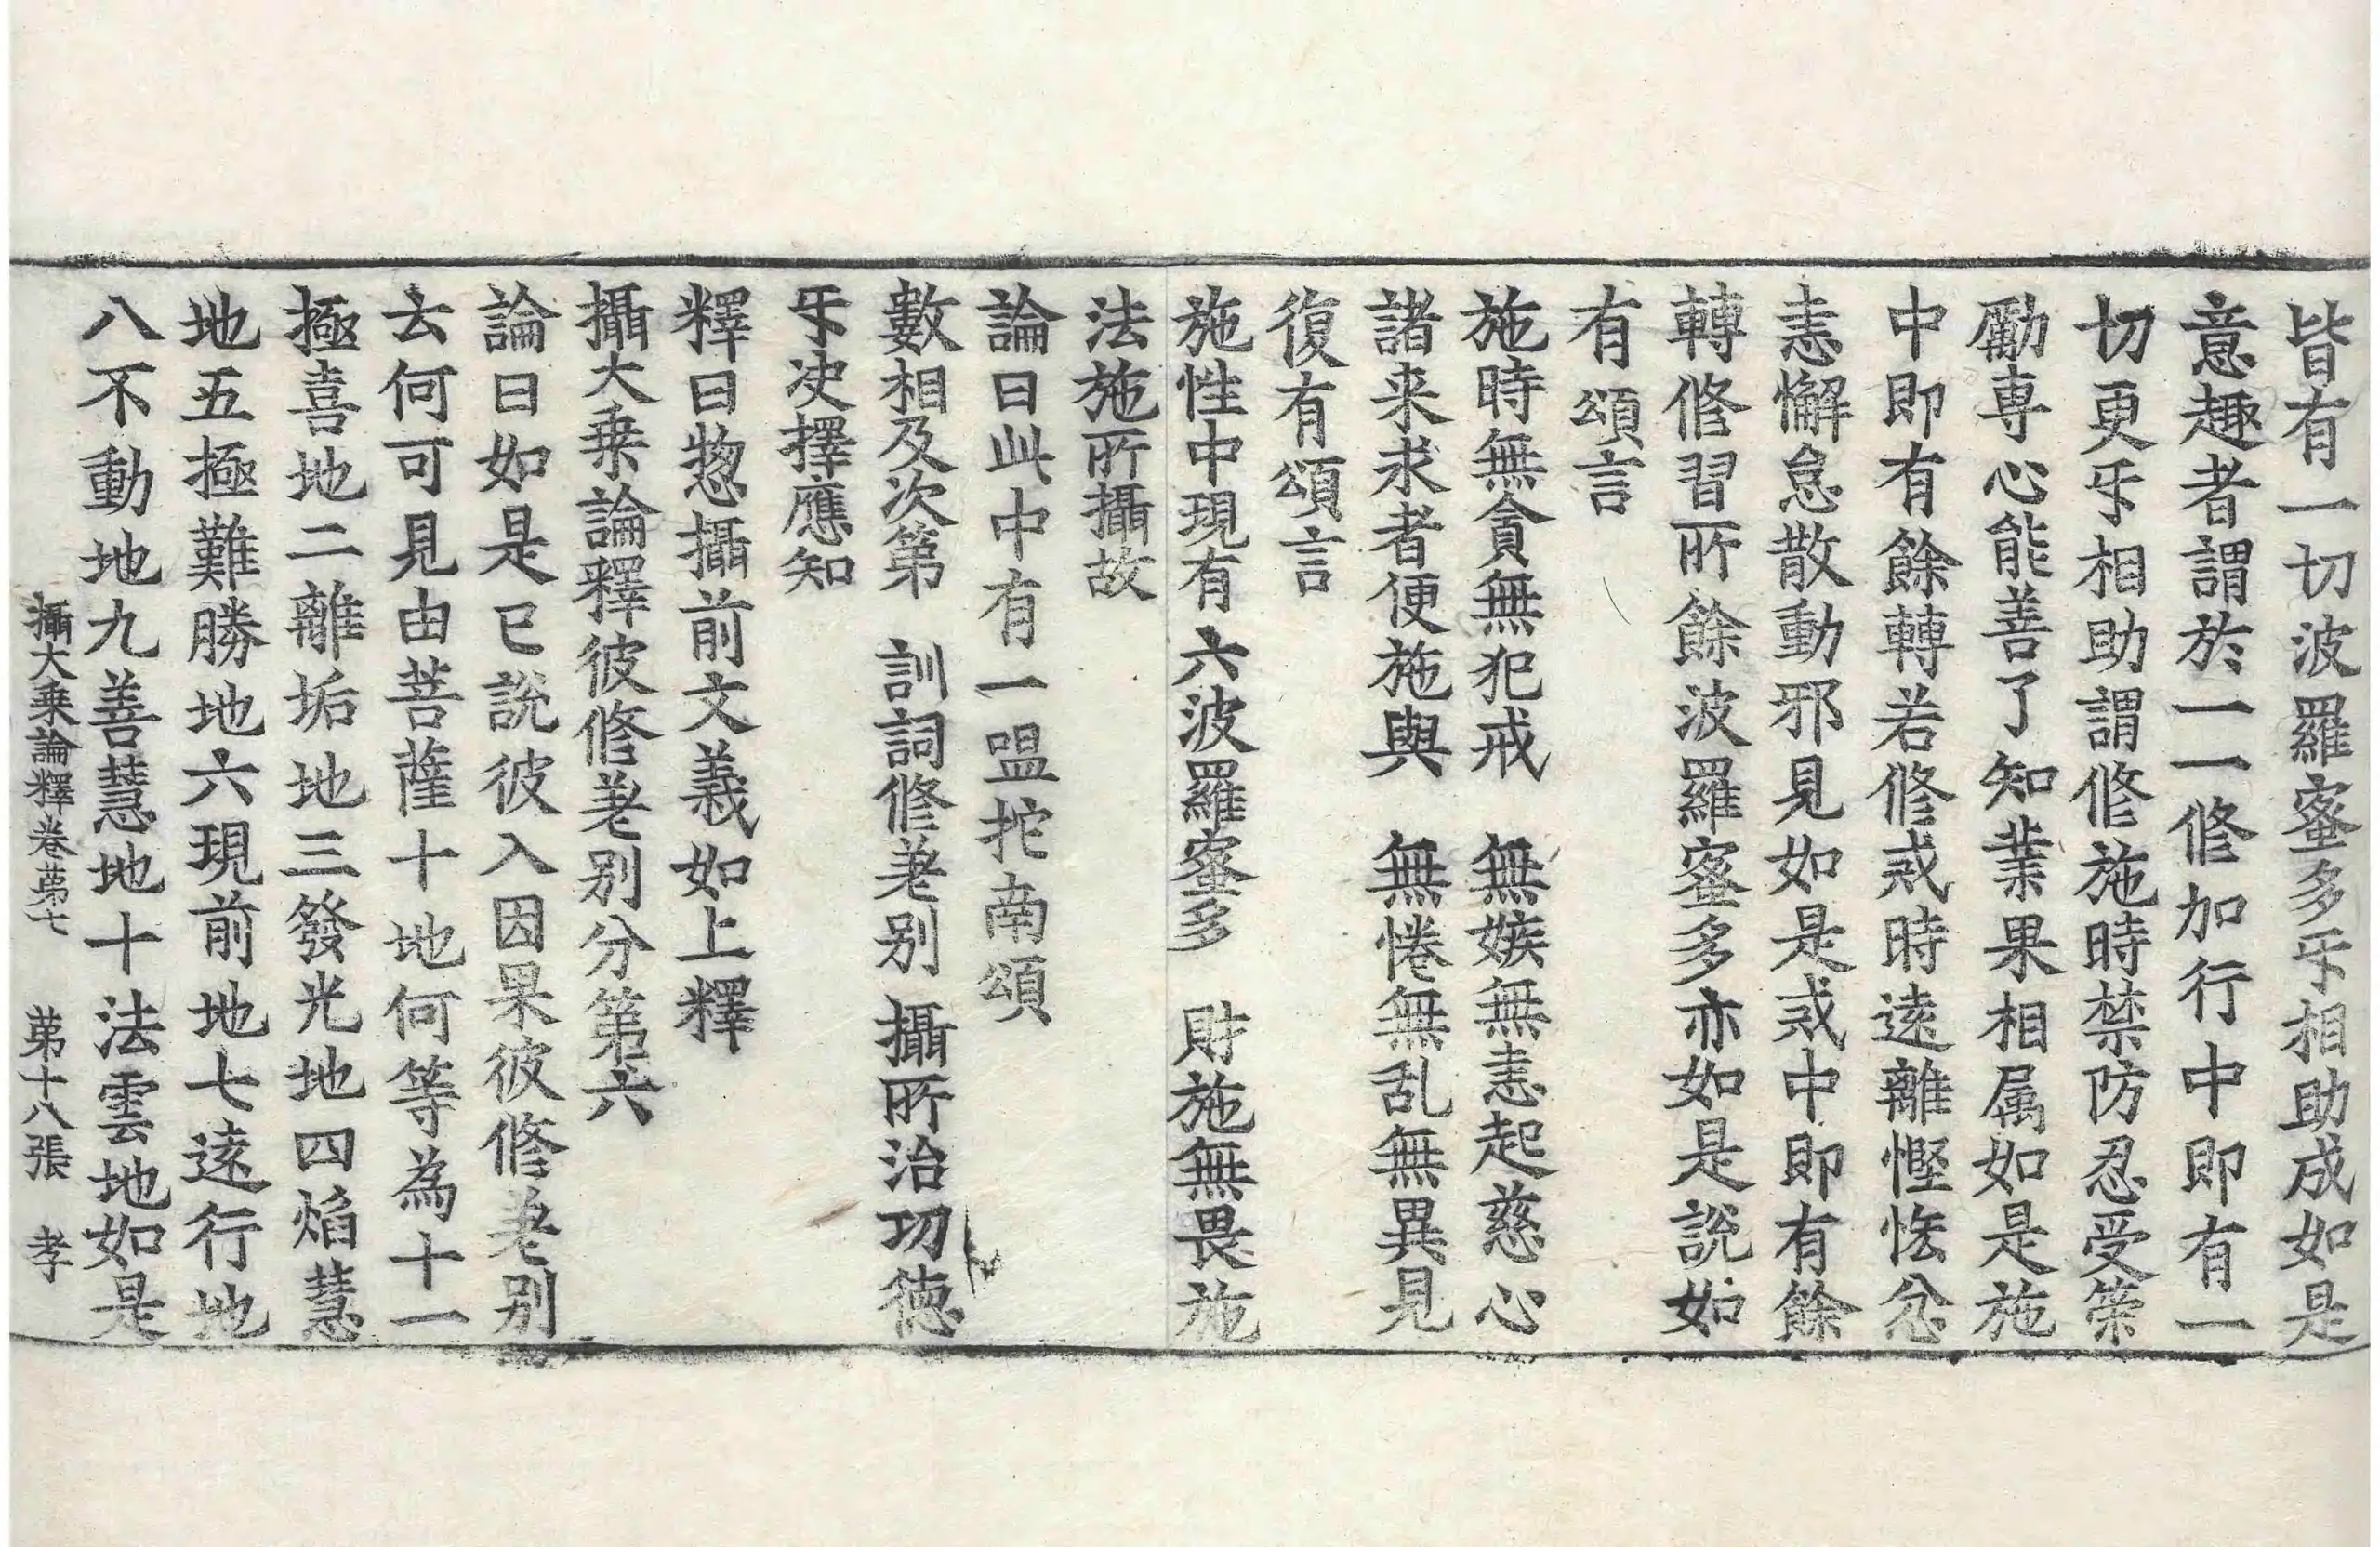 皆有一切波羅蜜多㸦相助成如是
意趣者謂於一一修加行中即有一
切更㸦相助謂修施時禁防忍受策
勵専心能善了知業果相属如是施
中即有餘轉若修戒時遠離慳悋忿
恚懈怠散動邪見如是戒中即有餘
轉修習所餘波羅蜜多亦如是說如
有頌言
施時無貪無犯戒　無嫉無恚起慈心
諸来求者便施與　無惓無乱無異見
復有頌言
施性中現有六波羅蜜多　財施無畏施
法施所攝故
論曰此中有一嗢拕南頌
數相及次第　訓詞修差別　攝所治功徳
㸦决擇應知
釋曰惣攝前文義如上釋
攝大乗論釋彼修差别分第六
論曰如是已說彼入因果彼修差别
云何可見由菩薩十地何等為十一
極喜地二離垢地三發光地四焰慧
地五極難勝地六現前地七遠行地
八不動地九善慧地十法雲地如是
攝大乗論釋卷苐七　苐十八張　孝